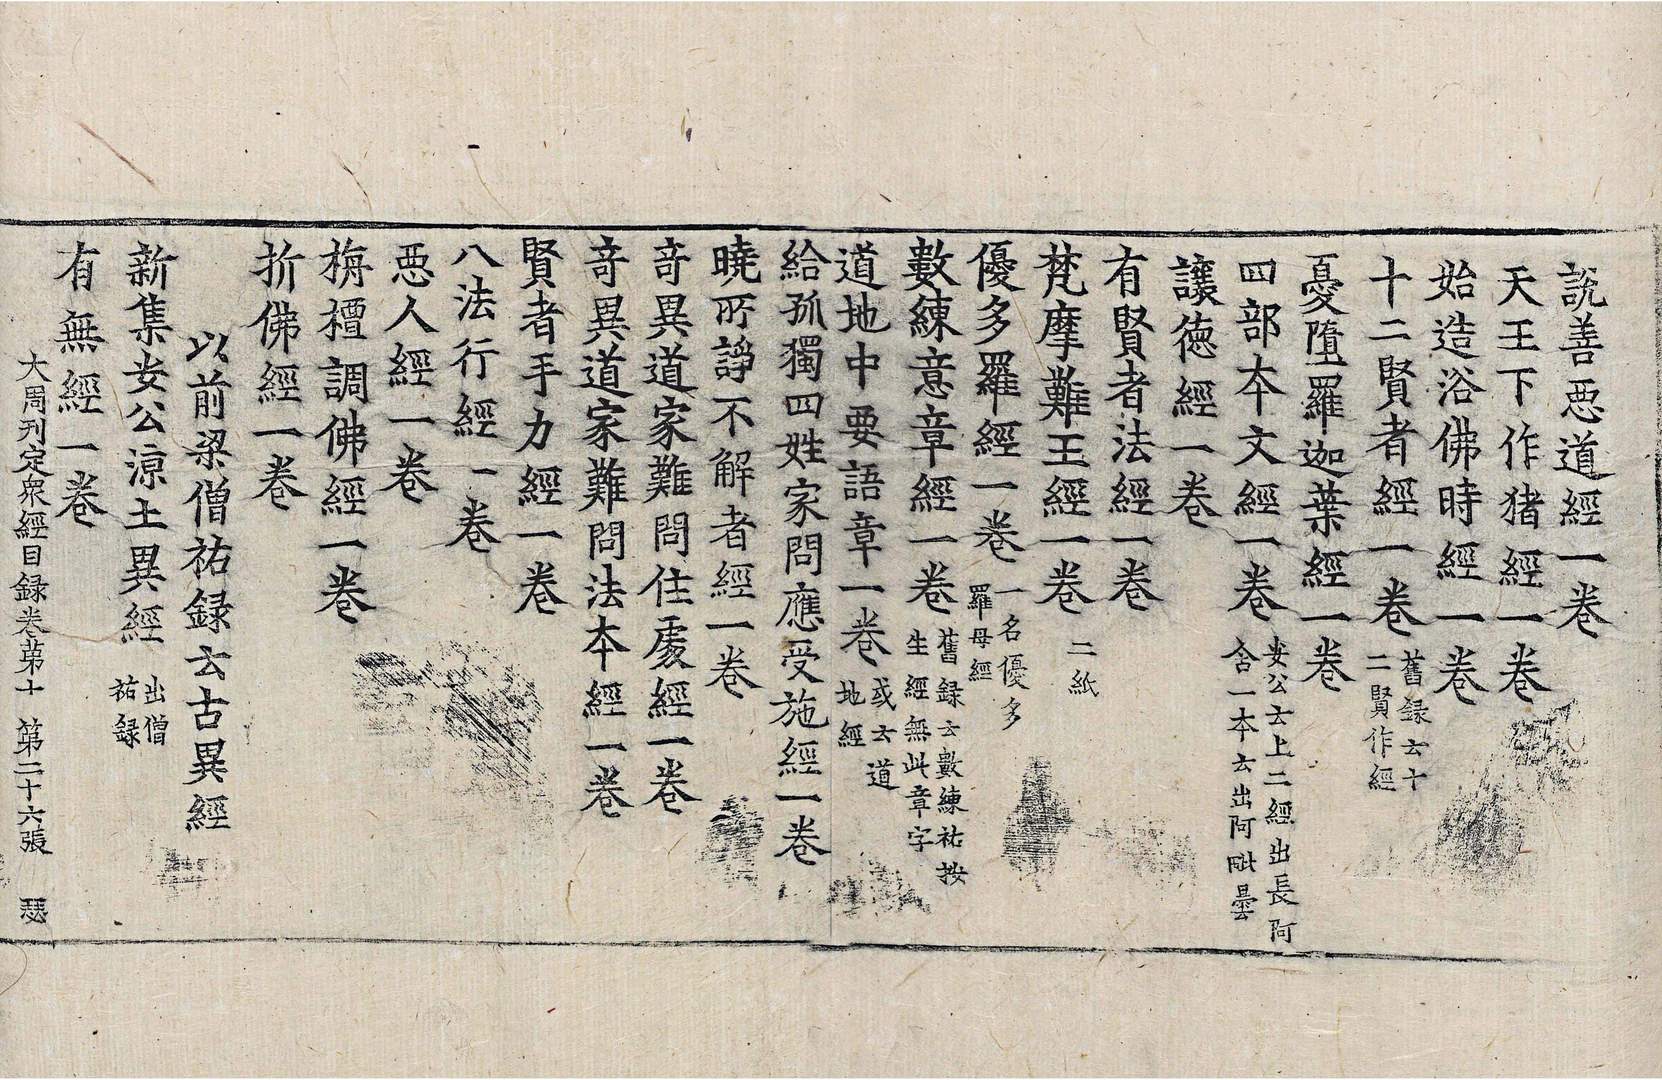 說善惡道經一卷
天王下作猪經一卷
始造浴佛時經一卷
十二賢者經一卷 舊録云十
二賢作經
憂墮羅迦葉經一卷
四部本文經一卷 安公云上二經出長阿
含一本云出阿毗曇
讓德經一卷
有賢者法經一卷
梵摩難王經一卷 二紙
優多羅經一卷 一名優多
羅母經
數練意章經一卷 舊録云數練祐按
生經無此章字
道地中要語章一卷 或云道
地經
給孤獨四姓家問應受施經一卷
曉所諍不解者經一卷
竒異道家難問住處經一卷
竒異道家難問法本經一卷
賢者手力經一卷
八法行經一卷
惡人經一卷
栴檀調佛經一卷
折佛經一卷
以前梁僧祐録云古異經
新集安公涼土異經 出僧
祐録
有無經一卷
大周刊定衆經目録卷第十 第二十六張 瑟